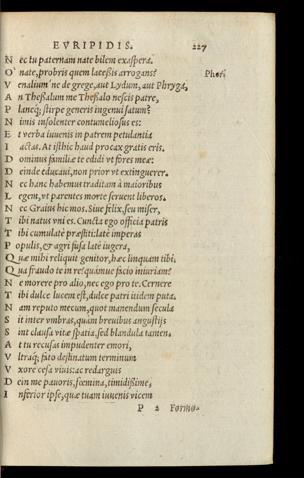 EVRIPIDIS. 227
N ec tu paternam nate bilem exaspera.
O nate, probris quem lacessis arrogans? Pheres
V enalium' ne de grege, aut Lydum, aut Phryga,
A n Thessalum me Thessalo nescis patre,
P lancq; stirpe generis ingenui satum?
N imis insolenter contumeliosus es:
E t verba iuuenis in patrem petulantia
I actas. At isthic haud procax gratis eris.
D ominus familiæ te edidi vt fores meæ:
D einde educaui, non prior vt extinguerer.
N ec hanc habemus traditam à maioribus
L egem, vt parentes morte seruent liberos.
N ec Graius hic mos. Siue felix, seu miser,
T ibi natus vni es. Cuncta ego officia patris
T ibi cumulatè præstiti: latè imperas
P opulis, & agri fusa latè iugera,
Q uæ mihi reliquit genitor, hæc linquam tibi.
Q ua fraudo te in re? quámue facio iniuriam?
N e morere pro alio, nec ego pro te. Cernere
T ibi dulce lucem est, dulce patri itidem puta.
N am reputo mecum, quot manendum secula
S it inter vmbras, quàm breuibus angustijs
S int clausa vitæ spatia, sed blandula tamen.
A t tu recusas impudenter emori,
V ltraq; fato destinatum terminum
V xore cæsa viuis: ac redarguis
D ein me pauoris, fœmina, timidissime,
I nferior ipse, quæ tuam iuuenis vicem
P 2 Formo-